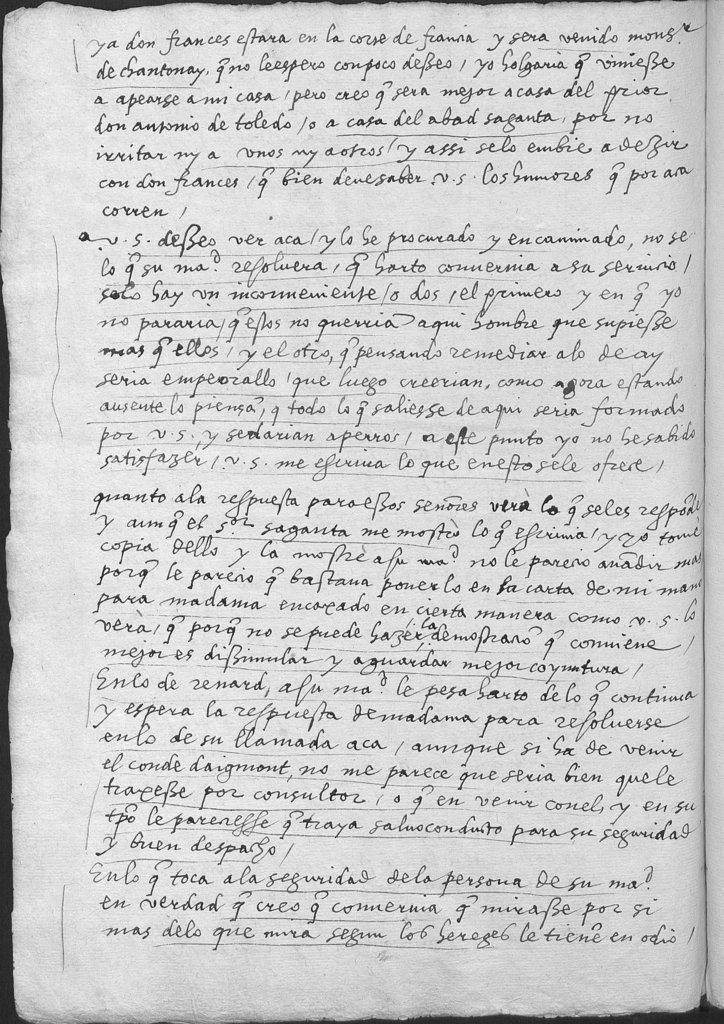 ya don frances estara en la corte de francia y sera venido mons.r
de chantonay, q̃ no le espero con poco desseo / yo holgaria q̃ viniesse
a apearse a mi casa / pero creo q̃ sera mejor a casa del prior
don antonio de toledo / o a casa del abad saganta, por no
irritar ny a unos ny a otros / y assi se lo embie a dezir
con don frances / q̃ bien deve saber v. s. los humores q̃ por aca
corren /
a v. s. desseo ver aca / y lo he procurado y encaminado, no se
lo q̃ su ma.d resolvera, q̃ harto convernia a su servicio /
solo hay un inconveniente / o dos, el primero y en q̃ yo
no pararia / q̃ estos no querriã aqui hombre que supiesse
mas q̃ ellos / y el otro, q̃ pensando remediar a lo de ay
seria empeorallo / que luego creerian, como agora estando
ausente lo piensã, q todo lo q̃ saliesse de aqui seria formado
por v. s. y se darian a perros / a este punto yo no he sabido
satisfazer / v. s. me escriva lo que en esto se le ofrece /
quanto a la respuesta para essos señores verà lo q̃ se les respõde
y aunq̃ el s.or saganta me mostrò lo q̃ escrivia / y yo tome
copia dello y la mostrè a su ma.d no le parecio anãdir mas
porq̃ le parecio q̃ bastava ponerlo en la carta de mi mano
para madama encaxado en cierta manera como v. s. lo
verà / q̃ porq̃ no se puede hazer la demostraciõ q̃ conviene /
mejor es dissimular y aguardar mejor coyuntura /
En lo de renard, a su ma.d le pesa harto de lo q̃ continua
y espera la respuesta de madama para resolverse
en lo de su llamada aca / aunque si ha de venir
el conde daigmont, no me parece que seria bien que le
traxesse por consultor / o q̃ en venir con el, y en su
tp̃o le pareciesse q̃ traya salvoconduto para su seguridad
y buen despacho /
En lo q̃ toca a la seguridad de la persona de su ma.d
en verdad q̃ creo q̃ convernia q̃ mirasse por si
mas de lo que mira segun los hereges le tienẽ en odio /